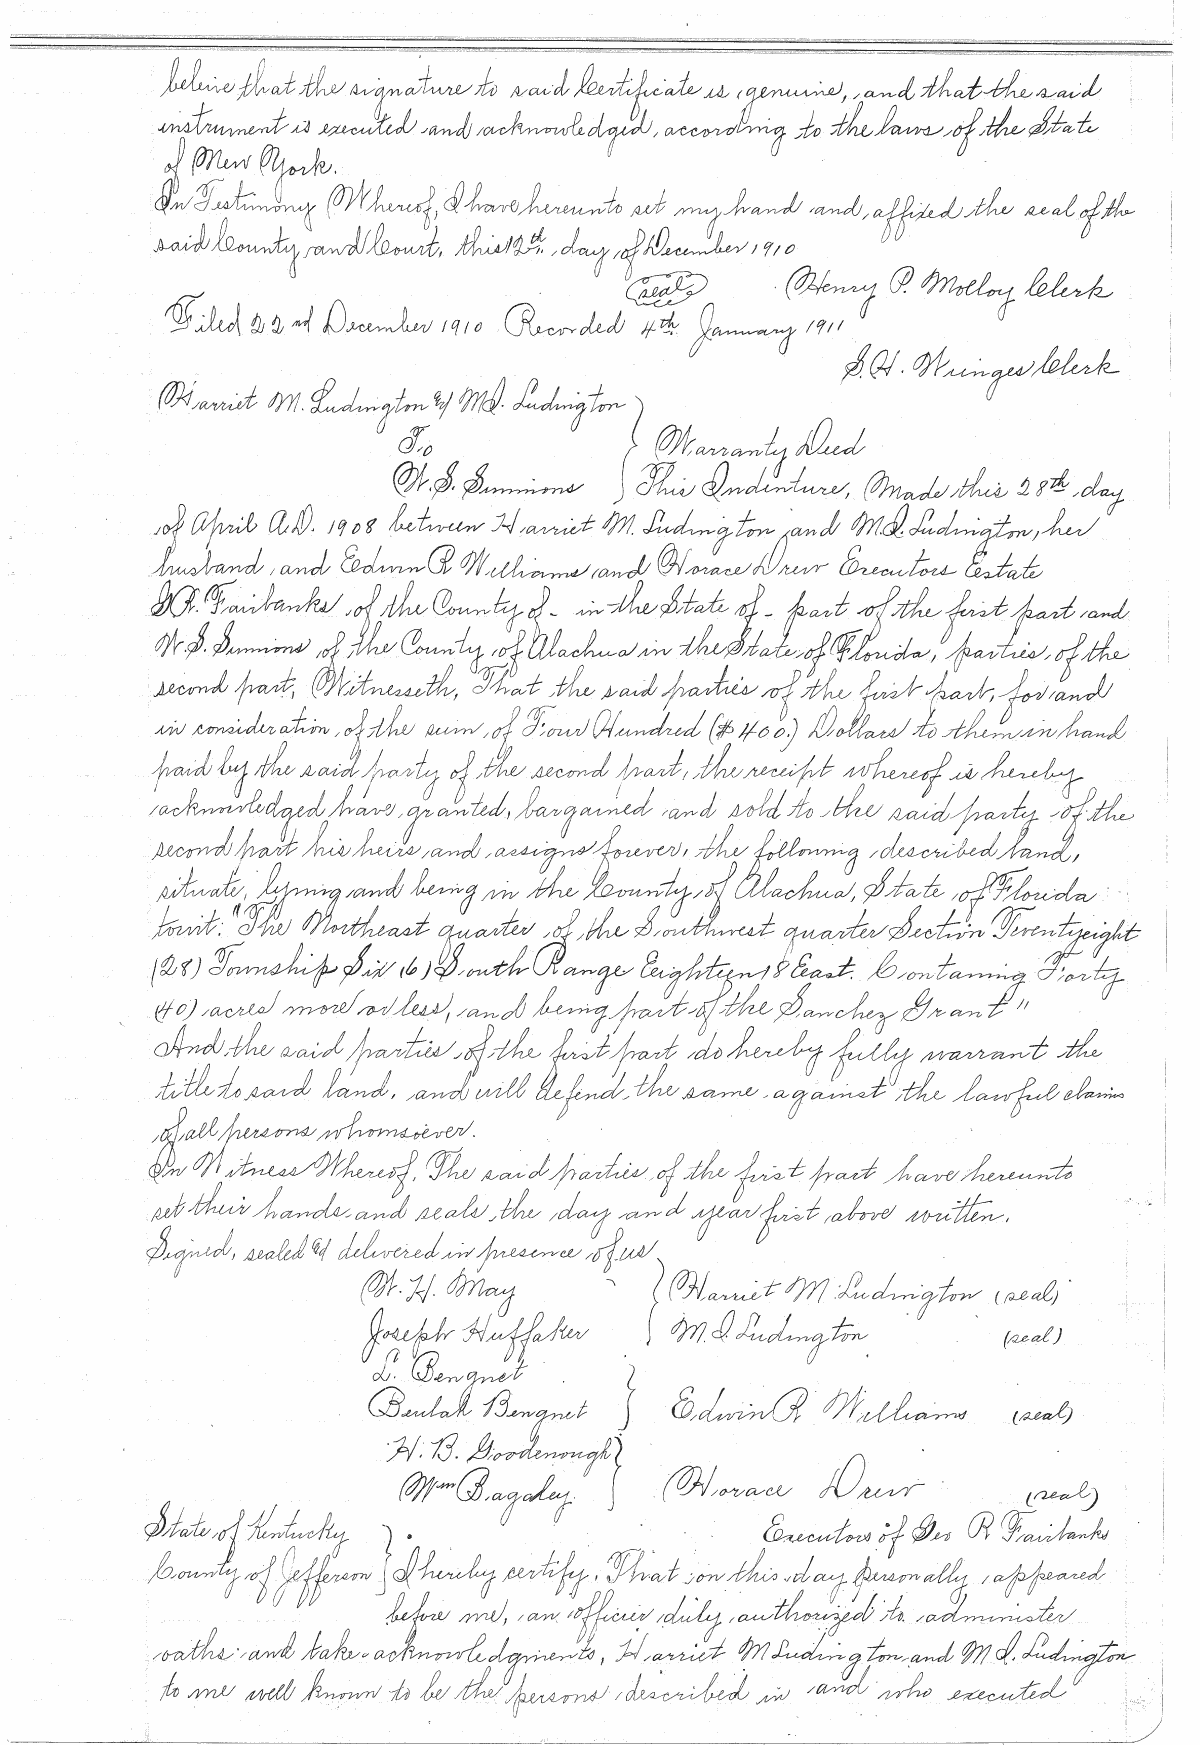 beleive that the signature to said Certificate is genuine, and that the said
instrument is executed and acknowledged, according to the laws of the State
of New York.
In Testimony Whereof, I have hereunto set my hand and affixed the seal of the
said County and Court, this 12th. day of December 1910
(seal) Henry P. Molloy Clerk
Filed 22nd December 1910 Recorded 4th January 1911
S.H. Wienges Clerk
Harriet M. Ludington & M.I. Ludington
To Warranty Deed
W. S. Summions This Indenture, Made this 28th day
of April A.D. 1908 between Harriet M. Ludington and M.I. Ludington, her
husband, and Edwin R Williams and Horace Drew Executors Estate
G.R. Fairbanks of the County of - in the State of - part of the first part and
W. S. Summions of the County of Alachua in the State of Florida, parties of the
second part, Witnesseth, That the said parties of the first part, for and
in consideration of the sum of Four Hundred ($400.) Dollars to them in hand
paid by the said party of the second part, the receipt whereof is hereby
acknowledged have granted, bargained and sold to the said party of the
second part his heirs and assigns forever, the following described land,
situate, lying and being in the County of Alachua, State of Florida
towit: "The Northeast quarter of the Southwest quarter Section Twentyeight
(28) Township Six (6) South Range Eeighteen 18 East. Containing Forty
(40) acres more or less, and being part of the Sanchez Grant"
And the said parties of the first part do hereby fully warrant the
title to said land, and will defend the same against the lawful claims
of all persons whomsoever.
In Witness Whereof, The said parties of the first part have hereunto
set their hands and seals the day and year first above written.
Signed, sealed & delivered in presence of us
W. H. May Harriet M Ludington (seal)
Joseph Huffaker M. I. Ludington (seal)
L. Bengnet
Beulah Bengnet Edwin R Williams (seal)
H. B. Goodenough
Wm Bagaley. Horace Drew (seal)
State of Kentucky Executors of Geo R Fairbanks
County of Jefferson I hereby certify, That on this day personally appeared
before me, an officier duly authorized to administer
oaths and take acknowledgments, Harriet M Ludington and M I. Ludington
to me well known to be the persons described in and who executed